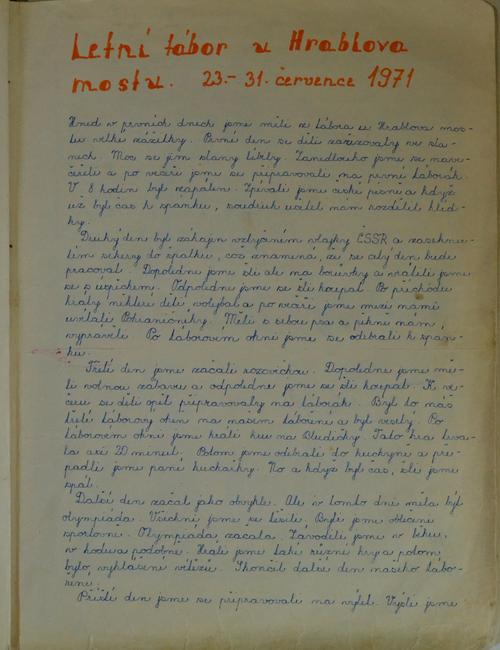 Letní tábor u Hrablova
mostu. 23.- 31. července 1971
Hned v prvních dnech jsme měli z tábora u Hrablova mos-
tu velké zážitky. První den se děti zařizovaly ve sta-
nech. Moc se jim stany líbily. Zanedlouho jsme se nave-
čeřeli a po večeři jsme se připravovali na první táborák.
V 8 hodin byl zapálen. Zpívali jsme české písně a když
už byl čas k spánku, soudruh učitel nám rozdělil hlíd-
ky.
Druhý den byl zahájen vztyčením vlajky ČSSR a zaseknu-
tím sekery do špalku, což znamená, že se celý den bude
pracovat. Dopoledne jsme šli ale na borůvky a vrátili jsme
se s úspěchem. Odpoledne jsme se šli koupat. Po příchodu
hrály některé děti volejbal a po večeři jsme mezi námi
uvítali Pohraničníky. Měli s sebou psa a pěkně nám
vyprávěli. Po táborovém ohni jsme se odebrali k spán-
ku.
Třetí den jsme začali rozcvičkou. Dopoledne jsme mě-
li volnou zábavu a odpoledne jsme se šli koupat. K ve-
čeru se děti opět připravovaly na táborák. Byl to náš
třetí táborový oheň na našem táboření a byl veselý. Po
táborovém ohni jsme hráli hru na Bludičky. Tato hra trva-
la asi 20 minut. Potom jsme odebrali do kuchyně a pře-
padli jsme paní kuchařky. No a když byl čas, šli jsme
spát.
Další den začal jako obvykle. Ale v tomto dni měla být
olympiáda. Všichni jsme se těšili. Byli jsme oblečeni
sportovně. Olympiáda začala. Závodili jsme v běhu,
v hodu a podobně. Hráli jsme také různé hry a potom
bylo vyhlášení vítězů. Skončil další den našeho tábo-
ření.
Příští den jsme se připravovali na výlet. Vyšli jsme